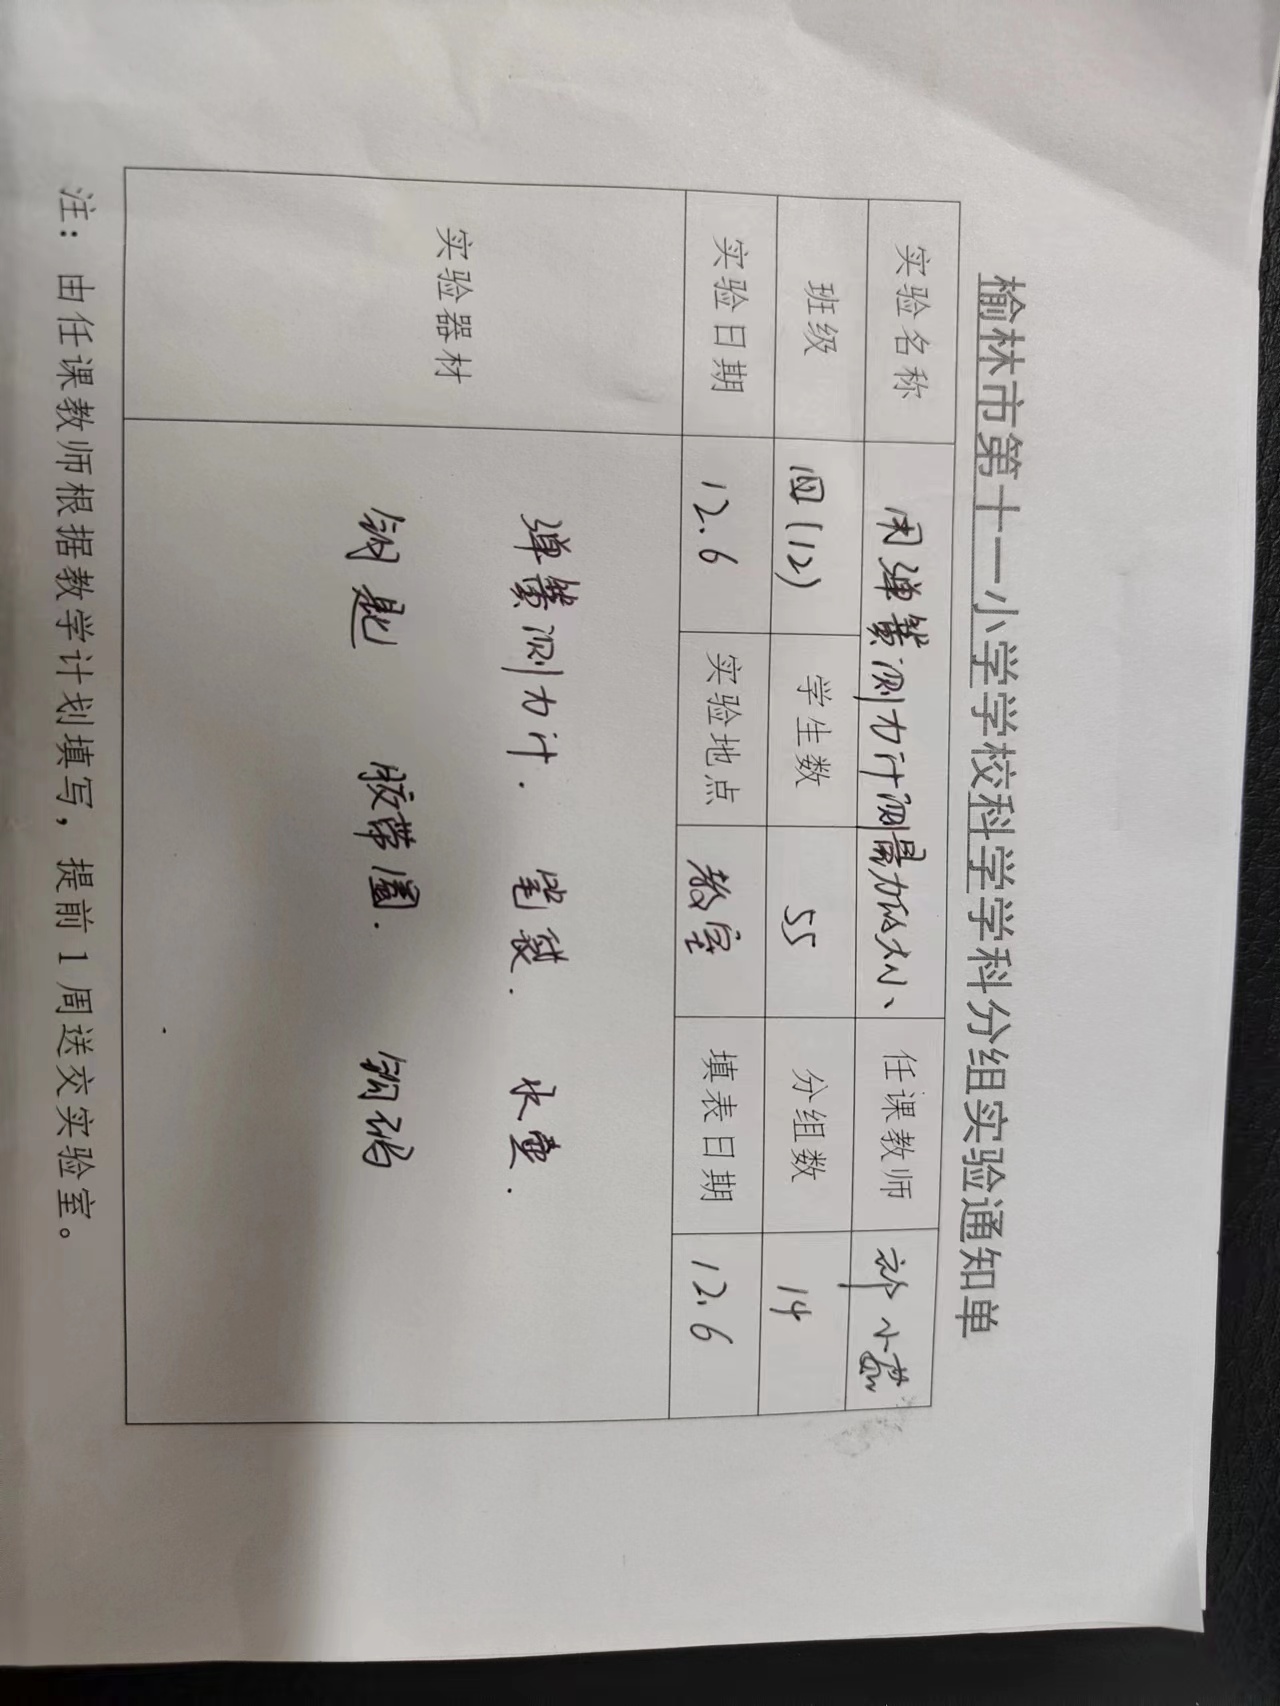 榆林市第十一小学学校科学学科分组实验通知单
实验名称 用弹簧测力计测量力的大小 任课教师 祁小茹
班级 四(12) 学生数 55 分组数 14
实验日期 12.6 实验地点 教室 填表日期 12.6
实验器材
弹簧测力计. 笔袋. 水壶.
钥匙 胶带圈. 钩码
注：由任课教师根据教学计划填写，提前1周送交实验室。